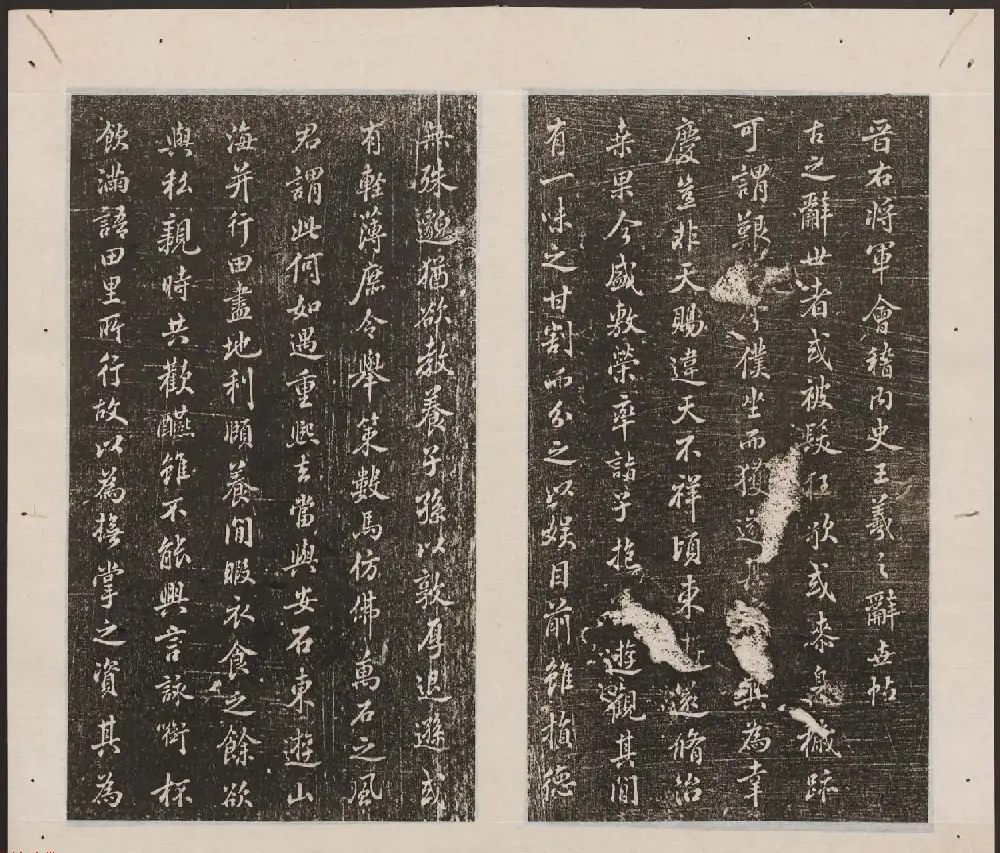 晉右將軍會稽內史王羲之辭世帖
古之辭世者或被髮狂歌或泰身穢跡
可謂艱矣僕坐而獲逸其為幸
慶豈非天賜違天不祥頃東遊還脩治
桒果今盛敷榮率諸子抱遊觀其間
有一味之甘割而分之以娛目前雖植德
無殊邈猶欲教養子孫以敦厚退遜或
有輕薄庶令舉策數馬仿佛萬石之風
君謂此何如遇重熙去當與安石東遊山
海并行田盡地利頤養閒暇衣食之餘欲
與私親時共歡醼雖不能興言詠銜杯
飲滿語田里所行故以為撫掌之資其為